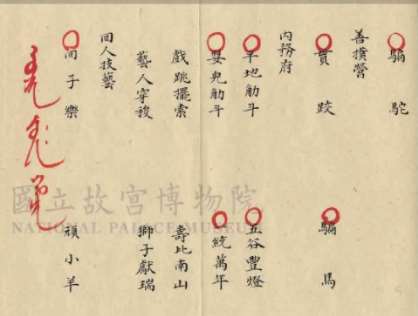 騙駝
善撲營
貫跤　騙馬
內務府
平地觔斗　五谷豐燈
嬰兒觔斗　統萬年
戲跳擺索　壽比南山
藝人穿　獅子獻瑞
回人技藝
回子樂　頑小羊
國立故宮博物院
NATIONAL PALACE MUSEUM